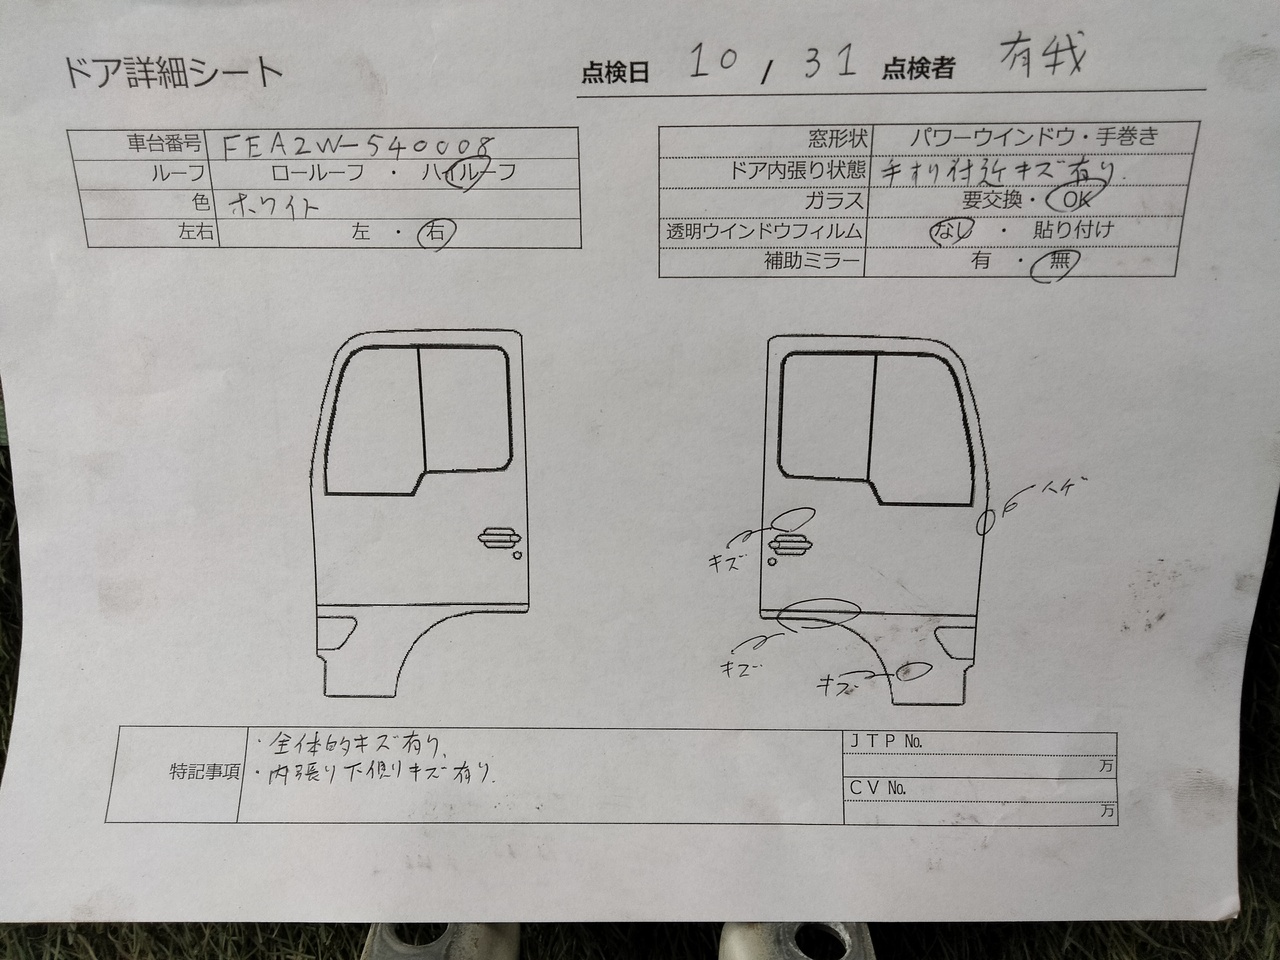 ドア詳細シート
点検日 10 / 31 点検者 有我
車台番号 FEA2W-540008
ルーフ ロールーフ ・ ハイルーフ
色 ホワイト
左右 左 ・ 右
窓形状 パワーウインドウ・手巻き
ドア内張り状態 手すり付近キズ有り.
ガラス 要交換・ OK
透明ウインドウフィルム なし ・ 貼り付け
補助ミラー 有 ・ 無
ハゲ
キズ
キズ
キズ
特記事項
・全体的キズ有り.
・内張り下側りキズ有り.
JTP No.
万
CV No.
万